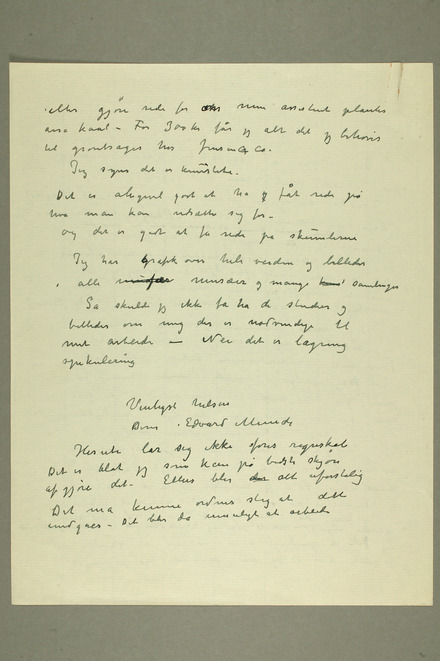 eller gjøre rede for min assistent plantes
ansa kaal – For 300 kr får jeg alt det jeg behøver
til grøntsager hos Jensen & Co.
Jeg synes det er
Det er alligevel godt at ha få rede på
hva man kan udsætte sig for –
og det er godt at få rede på skumlerne
Jeg har grafik over hele verden og billeder
i alle museer og mange samlinger
Så skulde jeg ikke få ha de studier og
billeder om mig der er nødvendige til
mit arbeide – Nei det er lagring
spekulering
Venligst hilsen
Deres Edvard Munch
Herute lar sig ikke føres regnskab
Det er blot jeg som kan på bedste skjøn
afgjøre det – Ellers blir det alt uforståelig
Det må kunne ordnes slig at dette
undgåes – Det blir da umuligt at arbeide